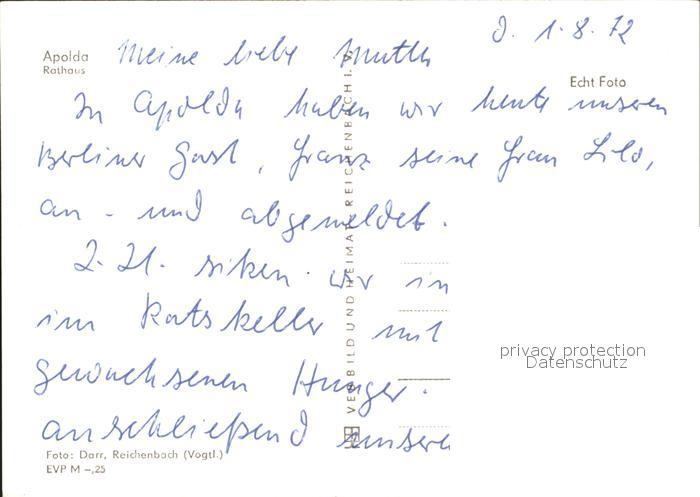 Apolda
Rathaus
D. 1.8.72
Meine liebe Mutter
Echt Foto
In Apolda haben wir heute unseren
Berliner Gast, Franz seine Frau Lilo,
an- und abgemeldet.
Z. Zt. sitzen wir in
im Ratskeller mit
gewachsenen Hunger.
anschließend unsere
VEB BILD UND HEIMAT REICHENBACH I. V.
privacy protection
Datenschutz
Foto: Darr, Reichenbach (Vogtl.)
EVP M –,25